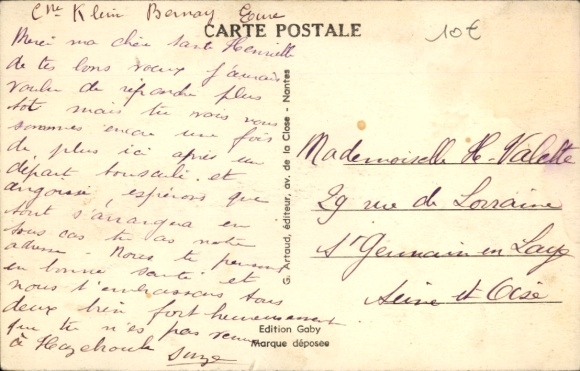 Cne Klein Bernay Eure
CARTE POSTALE
10€
Merci ma chère tante Henriette
de tes bons vœux j'aurais
voulu de répondre plus
tôt mais tu vois nous
sommes encore une fois
de plus ici après un
départ bousculé et
angoissé espérons que
tout s'arrangera en
tous cas tu as notre
adresse. Nous te pensons
en bonne santé et
nous t'embrassons tous
deux bien fort heureusement
que tu n'es pas venue
à Hazebrouck Suzie
G. Artaud, éditeur, av. de la Close - Nantes
Mademoiselle H. Valette
29 rue de Lorraine
St Germain en Laye
Seine et Oise
Edition Gaby
Marque déposée